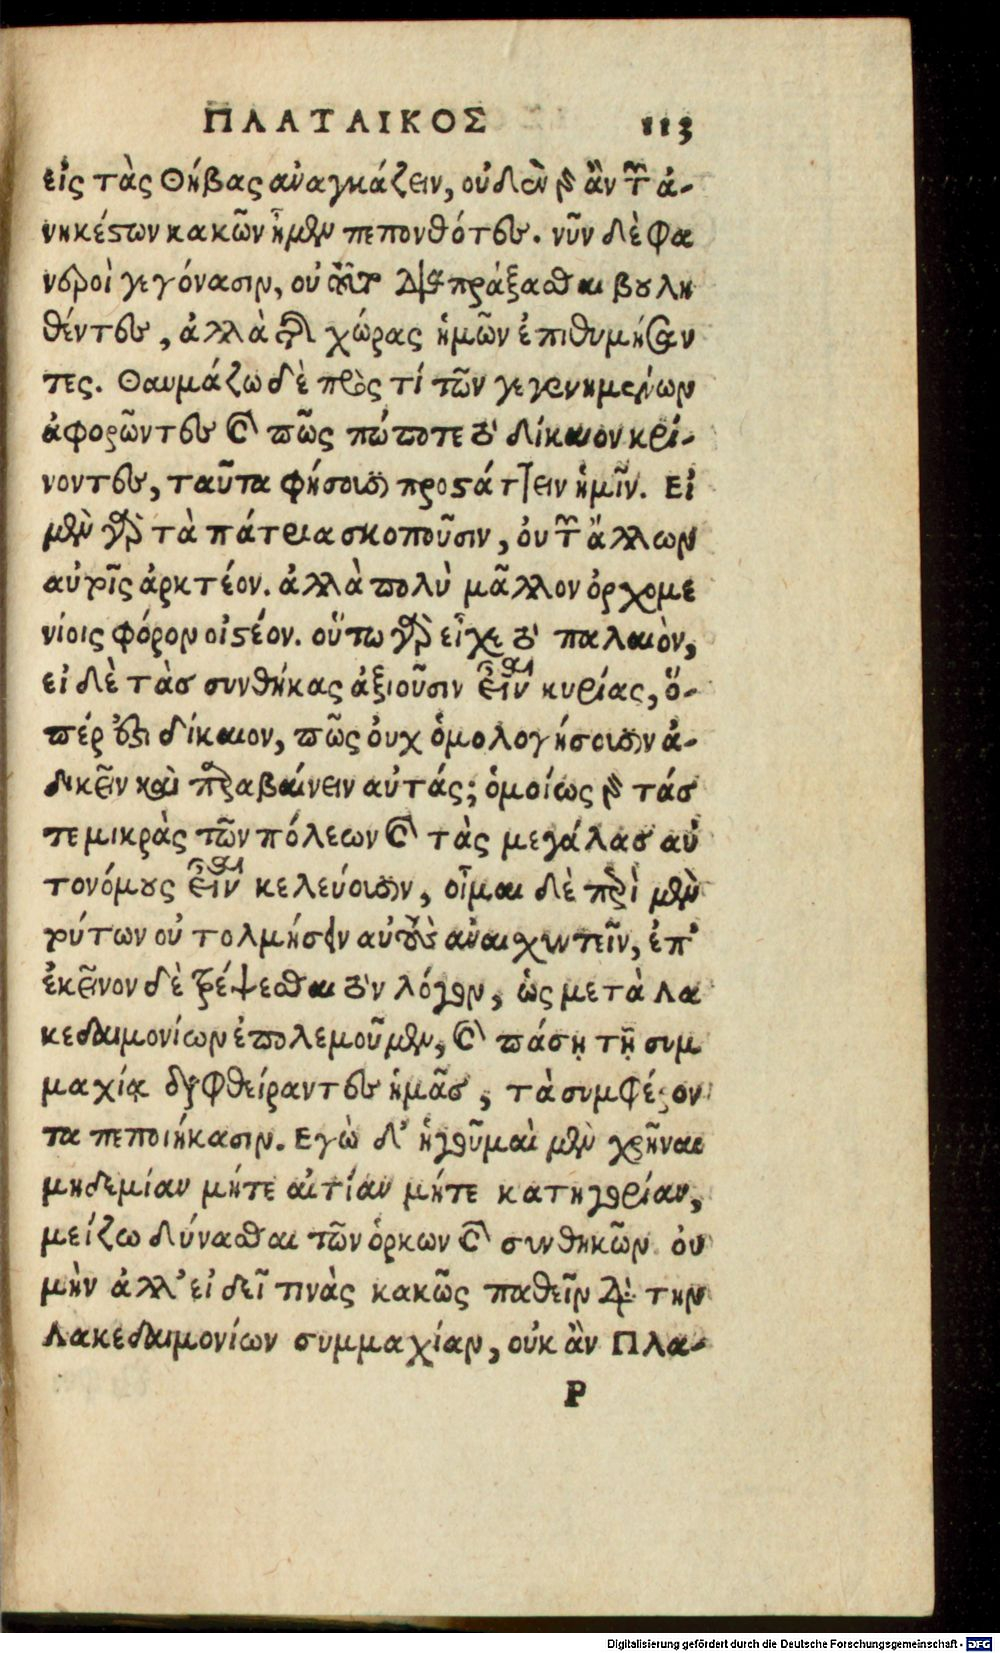 ΠΛΑΤΑΙΚΟΣ 113
εἰς τὰς Θήβας ἀναγκάζειν, οὐδὲν γὰρ ἂν τῶν ἀ-
νηκέστων κακῶν ἦμεν πεπονθότες. νῦν δὲ φα
νεροὶ γεγόνασιν, οὐ τοῦτο διαπράξασθαι βουλη
θέντες, ἀλλὰ τῆς χώρας ἡμῶν ἐπιθυμήσαν
τες. Θαυμάζω δὲ πρὸς τί τῶν γεγενημένων
ἀφορῶντες καὶ πῶς πώποτε τὸ δίκαιον κρί-
νοντες, ταῦτα φήσουσι προστάττειν ἡμῖν. Εἰ
μὲν γὰρ τὰ πάτρια σκοποῦσιν, οὐ τῶν ἄλλων
αὐτοῖς ἀρκτέον. ἀλλὰ πολὺ μᾶλλον ὀρχομε
νίοις φόρον οἰστέον. οὕτω γὰρ εἶχε τὸ παλαιὸν,
εἰ δὲ τὰς συνθήκας ἀξιοῦσιν εἶναι κυρίας, ὅ-
πέρ ἐστι δίκαιον, πῶς οὐχ ὁμολογήσουσιν ἀ-
δικεῖν καὶ παραβαίνειν αὐτάς; ὁμοίως γὰρ τάς
τε μικρὰς τῶν πόλεων καὶ τὰς μεγάλας αὐ
τονόμους εἶναι κελεύουσιν, οἶμαι δὲ περὶ μὲν
τούτων οὐ τολμήσειν αὐτοὺς ἀναισχυντεῖν, ἐπ'
ἐκεῖνον δὲ τρέψεσθαι τὸν λόγον, ὡς μετὰ Λα
κεδαιμονίων ἐπολεμοῦμεν, καὶ πάσῃ τῇ συμ
μαχίᾳ διαφθείραντες ἡμᾶς, τὰ συμφέρον
τα πεποιήκασιν. Εγὼ δ' ἡγοῦμαὶ μὲν χρῆναι
μηδεμίαν μήτε αἰτίαν μήτε κατηγορίαν,
μείζω δύνασθαι τῶν ὅρκων καὶ συνθηκῶν. οὐ
μὴν ἀλλ' εἰ δεῖ τινὰς κακῶς παθεῖν διὰ τὴν
Λακεδαιμονίων συμμαχίαν, οὐκ ἂν Πλα-
P
Digitalisierung gefördert durch die Deutsche Forschungsgemeinschaft - DFG